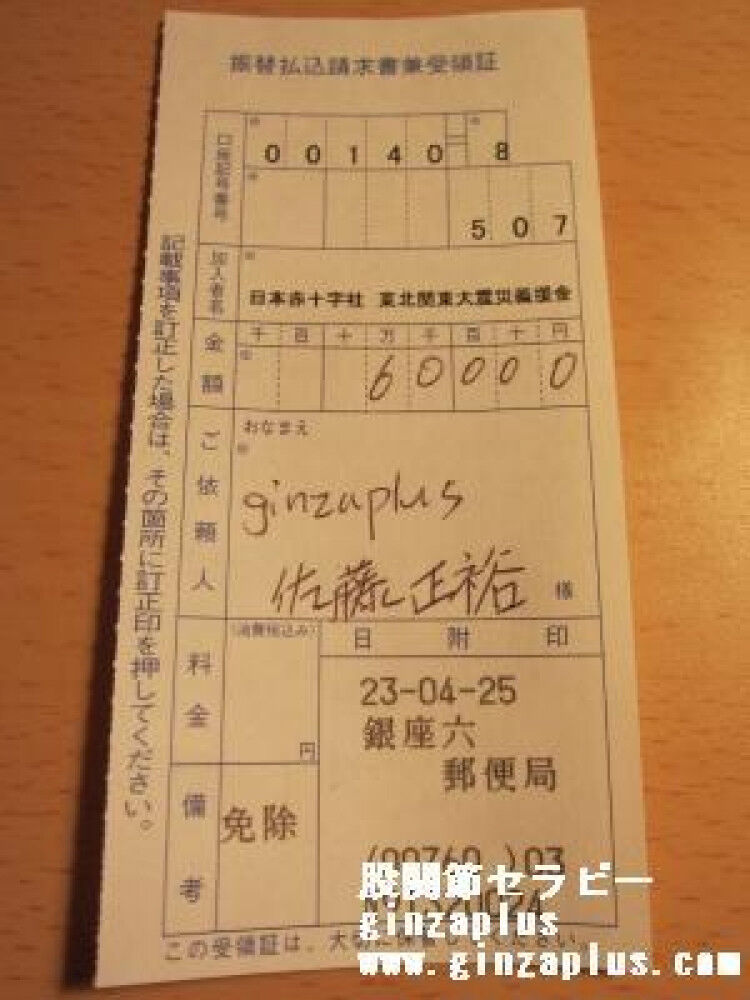 振替払込請求書兼受領証
口座記号番号
00140 8
507
加入者名
日本赤十字社 東北関東大震災義援金
金額
千 百 十 万 千 百 十 円
60000
ご依頼人
おなまえ
ginzaplus
佐藤正裕 様
料金
(消費税込み)
円
日附印
23-04-25
銀座六
郵便局
備考
免除
記載事項を訂正した場合は、その箇所に訂正印を押してください。
この受領証は、大切に保管してください。
股関節セラピー
ginzaplus
www.ginzaplus.com